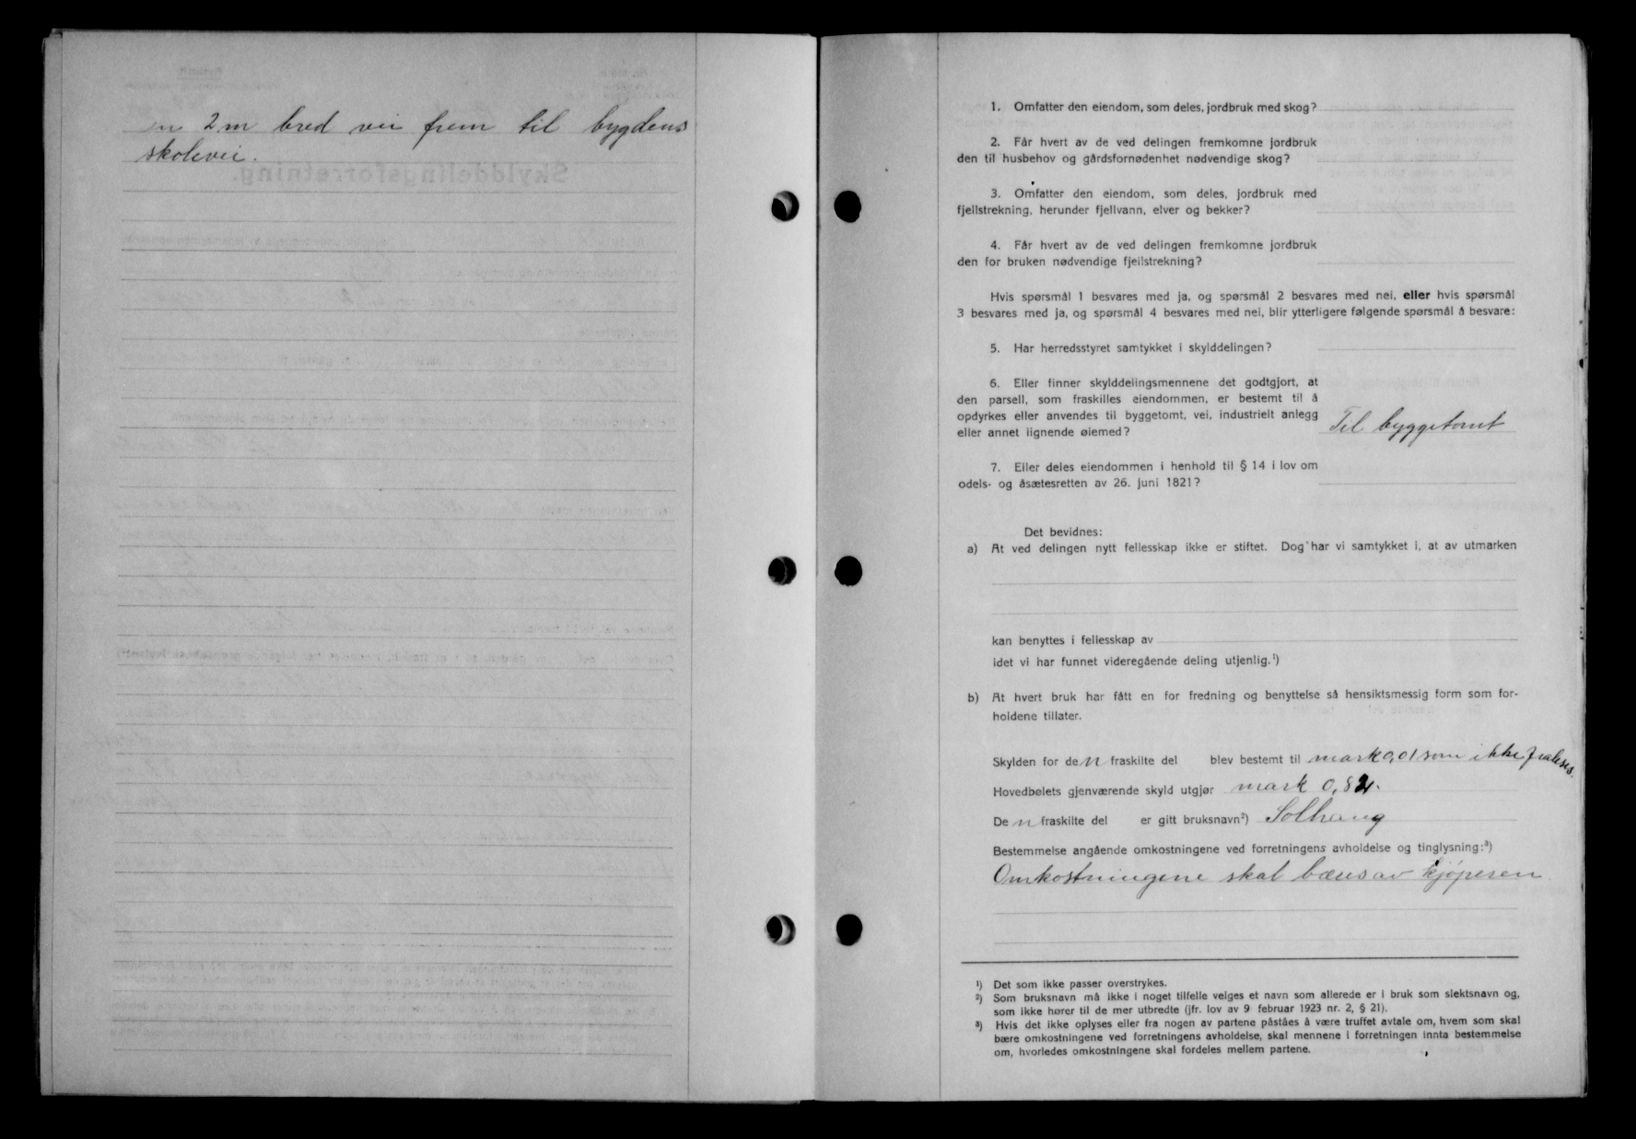 en 2 m bred vei frem til bygdens
skolevei.
1. Omfatter den eiendom, som deles, jordbruk med skog?
2. Får hvert av de ved delingen fremkomne jordbruk
den til husbehov og gårdsfornødenhet nødvendige skog?
3. Omfatter den eiendom, som deles, jordbruk med
fjellstrekning, herunder fjellvann, elver og bekker?
4. Får hvert av de ved delingen fremkomne jordbruk
den for bruken nødvendige fjellstrekning?
Hvis spørsmål 1 besvares med ja, og spørsmål 2 besvares med nei, eller hvis spørsmål
3 besvares med ja, og spørsmål 4 besvares med nei, blir ytterligere følgende spørsmål å besvare:
5. Har herredsstyret samtykket i skylddelingen?
6. Eller finner skylddelingsmennene det godtgjort, at
den parsell, som fraskilles eiendommen, er bestemt til å
opdyrkes eller anvendes til byggetomt, vei, industrielt anlegg
eller annet lignende øiemed? Til byggetomt
7. Eller deles eiendommen i henhold til § 14 i lov om
odels- og åsætesretten av 26. juni 1821?
Det bevidnes:
a) At ved delingen nytt fellesskap ikke er stiftet. Dog har vi samtykket i, at av utmarken
kan benyttes i fellesskap av
idet vi har funnet videregående deling utjenlig.¹)
b) At hvert bruk har fått en for fredning og benyttelse så hensiktsmessig form som for-
holdene tillater.
Skylden for den fraskilte del blev bestemt til mark 0,01 som ikke fraleses.
Hovedbølets gjenværende skyld utgjør mark 0,82.
Den fraskilte del er gitt bruksnavn²) Solhaug
Bestemmelse angående omkostningene ved forretningens avholdelse og tinglysning:³)
Omkostningene skal bæres av kjøperen
¹) Det som ikke passer overstrykes.
²) Som bruksnavn må ikke i noget tilfelle velges et navn som allerede er i bruk som slektsnavn og,
som ikke hører til de mer utbredte (jfr. lov av 9 februar 1923 nr. 2, § 21).
³) Hvis det ikke oplyses eller fra nogen av partene påståes å være truffet avtale om, hvem som skal
bære omkostningene ved forretningens avholdelse, skal mennene i forretningen innta bestemmelse
om, hvorledes omkostningene skal fordeles mellem partene.